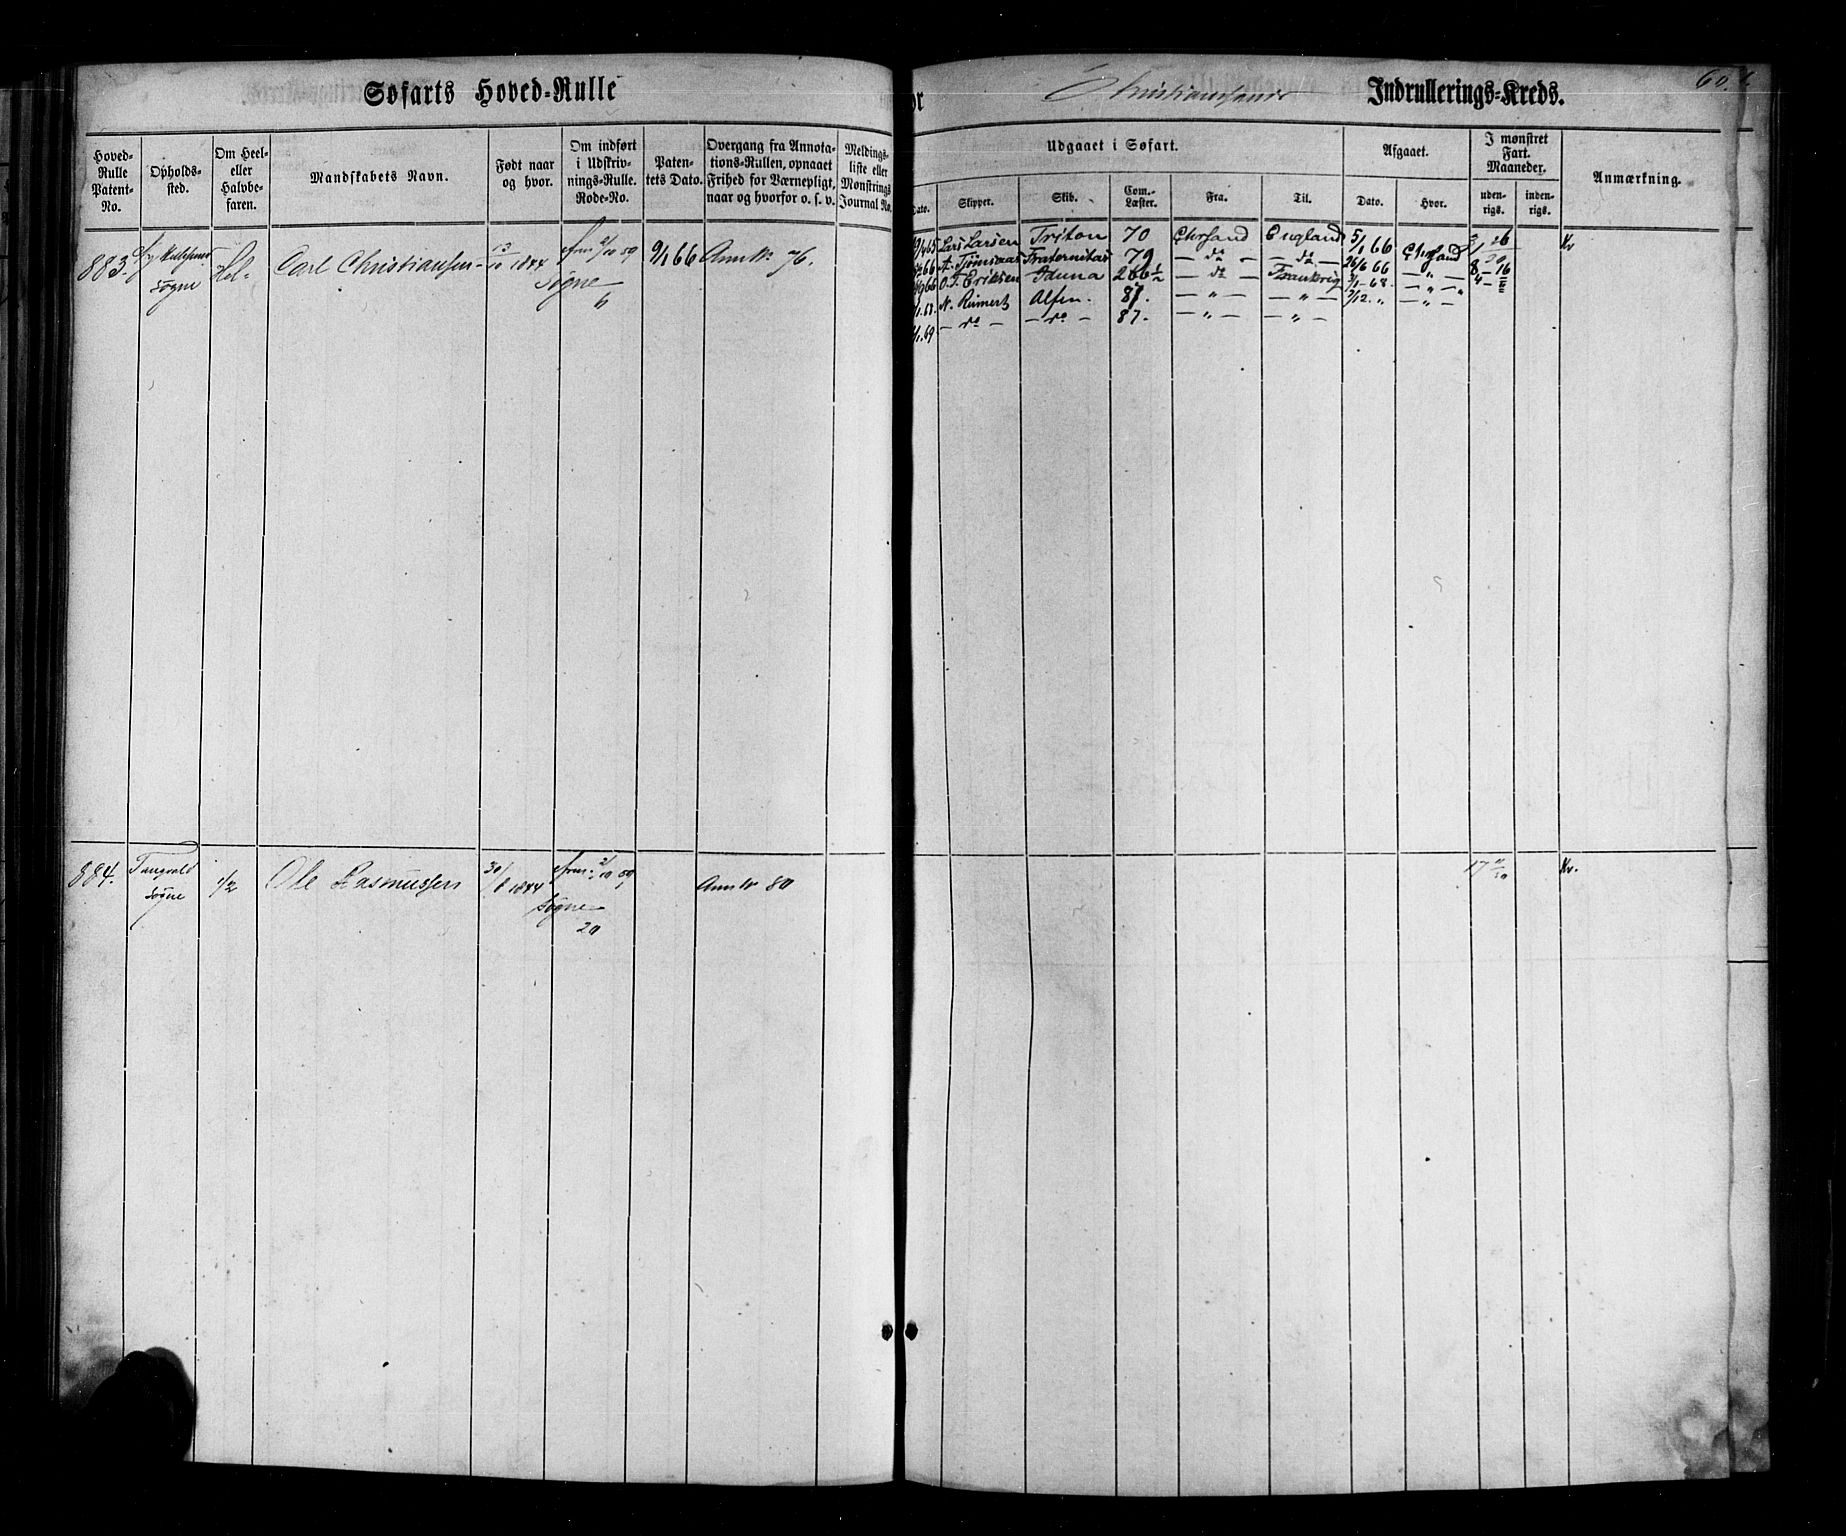 Søfarts Hoved-Rulle
Christianssands Indrullerings-Kreds.
Hoved-Rulle Patent-No.
Opholdssted.
Om Heel- eller Halvbefaren.
Mandskabets Navn.
Født naar og hvor.
Om indført i Udskrivnings-Rulle. Rode-No.
Patentets Dato.
Overgang fra Annotations-Rullen, opnaaet Frihed for Værnepligt, naar og hvorfor o. s. v.
Meldingsliste eller Mønstrings Journal No.
Udgaaet i Søfart.
Dato.
Skipper.
Skib.
Com.-Læster.
Fra.
Til.
Afgaaet.
Dato.
Hvor.
I mønstret Fart. Maaneder.
udenrigs.
indenrigs.
Anmærkning.
883.
Søgne
Hel-
Carl Christiansen
13/10 1844
2/10 59
Søgne
6
9/1 66
Ann. 76.
Lars Larsen Triton 70 Chrsand England 5/1 66 Chrsand
Fraternitas 79 — do — — do — 26/6 66 — " —
O. T. Eriksen Iduna — do — Frankrig
N. Reimert Alfen. 87. — " — — " —
— do — — do — 87. — " — — " —
Kv
884.
Tangvald
Søgne
1/2
Ole Rasmussen
30/8 1844
2/10 59
Søgne
20
Ann. 80
17
Kv.